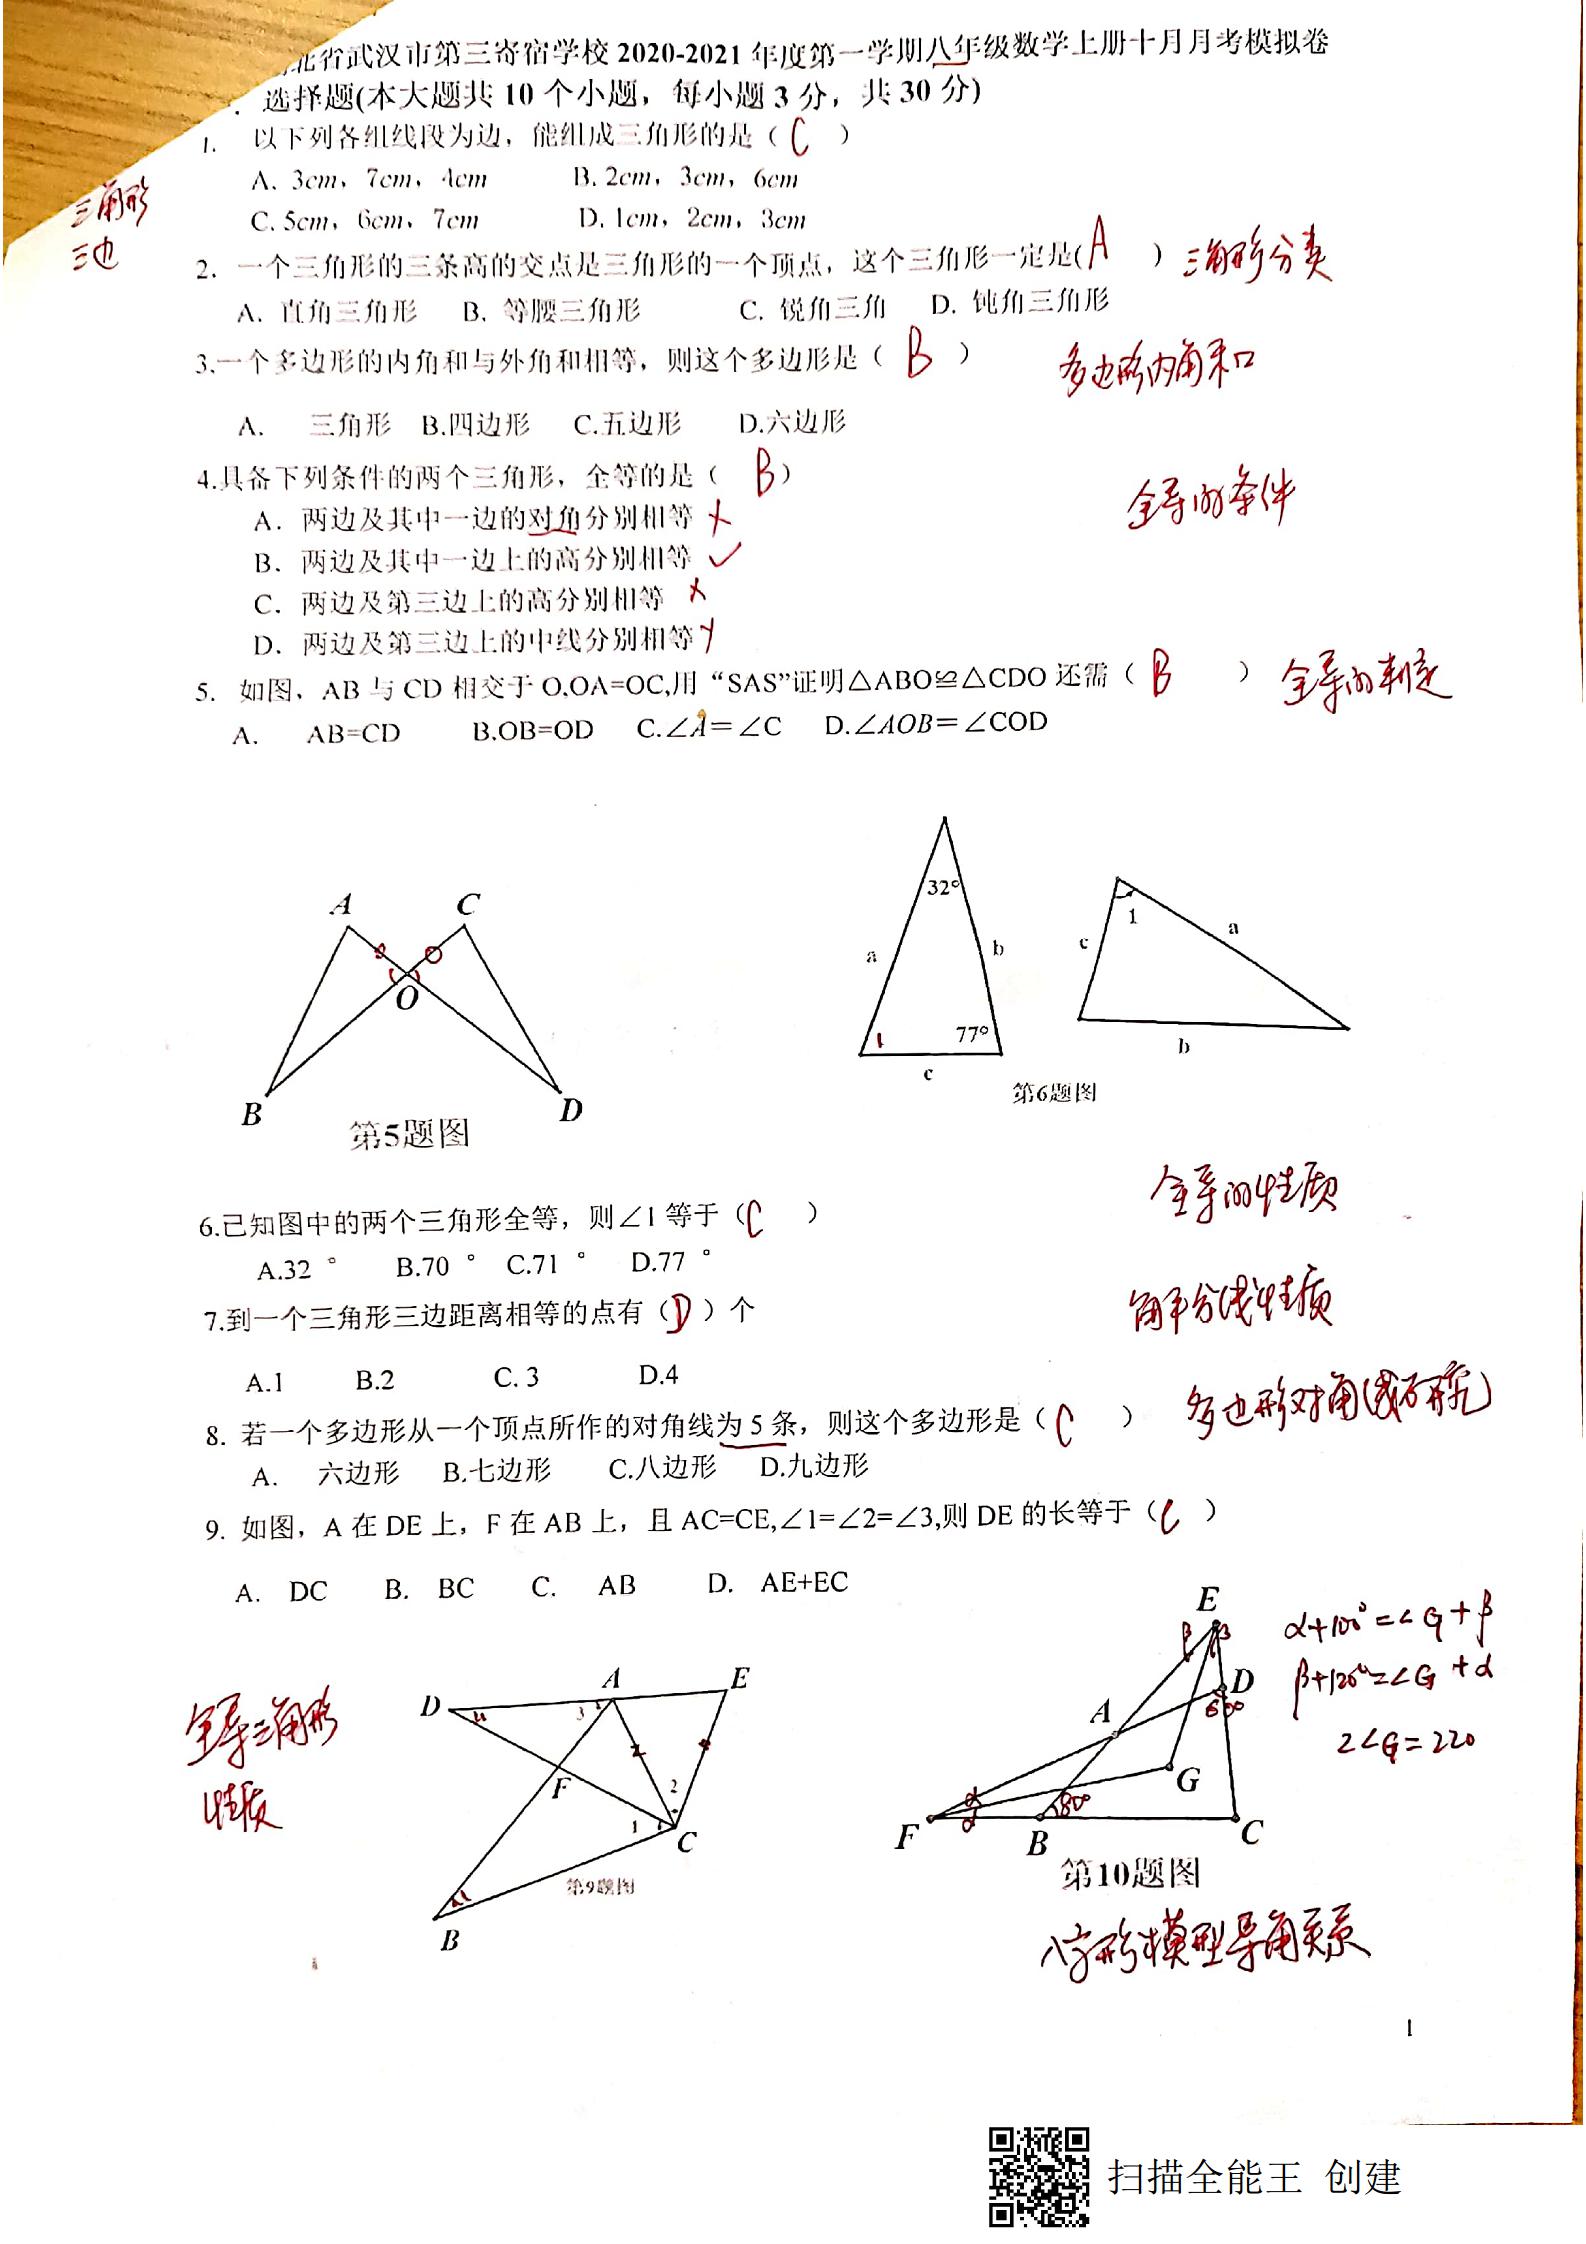 北省武汉市第三寄宿学校 2020-2021 年度第一学期八年级数学上册十月月考模拟卷
选择题(本大题共 10 个小题，每小题 3 分，共 30 分)
1. 以下列各组线段为边，能组成三角形的是（ C ）
A. 3cm，7cm，4cm B. 2cm，3cm，6cm
三角形
C. 5cm，6cm，7cm D. 1cm，2cm，3cm
三边
2. 一个三角形的三条高的交点是三角形的一个顶点，这个三角形一定是( A ） 三角形分类
A. 直角三角形 B. 等腰三角形 C. 锐角三角 D. 钝角三角形
3.一个多边形的内角和与外角和相等，则这个多边形是（ B ） 多边形内角和
A. 三角形 B.四边形 C.五边形 D.六边形
4.具备下列条件的两个三角形，全等的是（ B ） 全等的条件
A. 两边及其中一边的对角分别相等 ×
B. 两边及其中一边上的高分别相等 ✓
C. 两边及第三边上的高分别相等 ×
D. 两边及第三边上的中线分别相等 ×
5. 如图，AB 与 CD 相交于 O,OA=OC,用“SAS”证明△ABO≌△CDO 还需（ B ） 全等的判定
A. AB=CD B.OB=OD C.∠A=∠C D.∠AOB=∠COD
A C O B D
第5题图
32° a b 1 77° c
1 a c b
第6题图
全等的性质
6.已知图中的两个三角形全等，则∠1 等于（ C ）
A.32 ° B.70 ° C.71 ° D.77 °
7.到一个三角形三边距离相等的点有（ D ）个 角平分线性质
A.1 B.2 C. 3 D.4
8. 若一个多边形从一个顶点所作的对角线为 5 条，则这个多边形是（ C ） 多边形对角线(研究)
A. 六边形 B.七边形 C.八边形 D.九边形
9. 如图，A 在 DE 上，F 在 AB 上，且 AC=CE,∠1=∠2=∠3,则 DE 的长等于（ C ）
A. DC B. BC C. AB D. AE+EC
全等三角形
性质
D A E 3 F 2 1 C B
第9题图
E β β D 60° A G α α 80° F B C
第10题图
α+100°=∠G+β
β+120°=∠G+α
2∠G=220
八字形模型导角关系
1
扫描全能王 创建